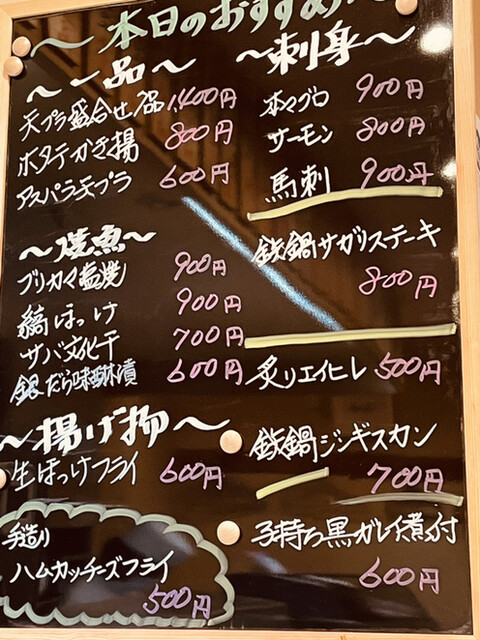 〜本日のおすすめ〜
〜一品〜
天プラ盛合せ5品 1,400円
ホタテかき揚 800円
アスパラ天プラ 600円
〜焼魚〜
ブリカマ塩焼 900円
縞ほっけ 900円
サバ文化干 700円
銀だら味醂漬 600円
〜揚げ物〜
生ほっけフライ 600円
手造り
ハムカッチーズフライ
500円
〜刺身〜
本マグロ 900円
サーモン 800円
馬刺 900円
鉄鍋サガリステーキ
800円
炙りエイヒレ 500円
鉄鍋ジンギスカン
700円
子持ち黒ガレイ煮付
600円